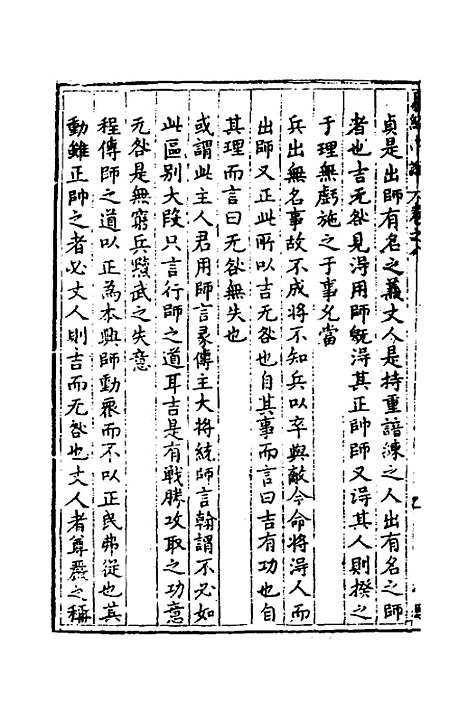 貞是出師有名之義丈人是持重諳練之人出有名之師
者也吉无咎見得用師既得其正帥師又得其人則揆之
于理無虧施之于事允當
兵出無名事故不成將不知兵以卒與敵今命將得人而
出師又正此所以吉无咎也自其事而言曰吉有功也自
其理而言曰无咎無失也
或謂此主人君用師言彖傳主大將統師言翰謂不必如
此區别大段只言行師之道耳吉是有戰勝攻取之功意
无咎是無窮兵黷武之失意
程傳師之道以正為本興師動衆而不以正民弗從也其
動雖正帥之者必丈人則吉而无咎也丈人者尊嚴之稱